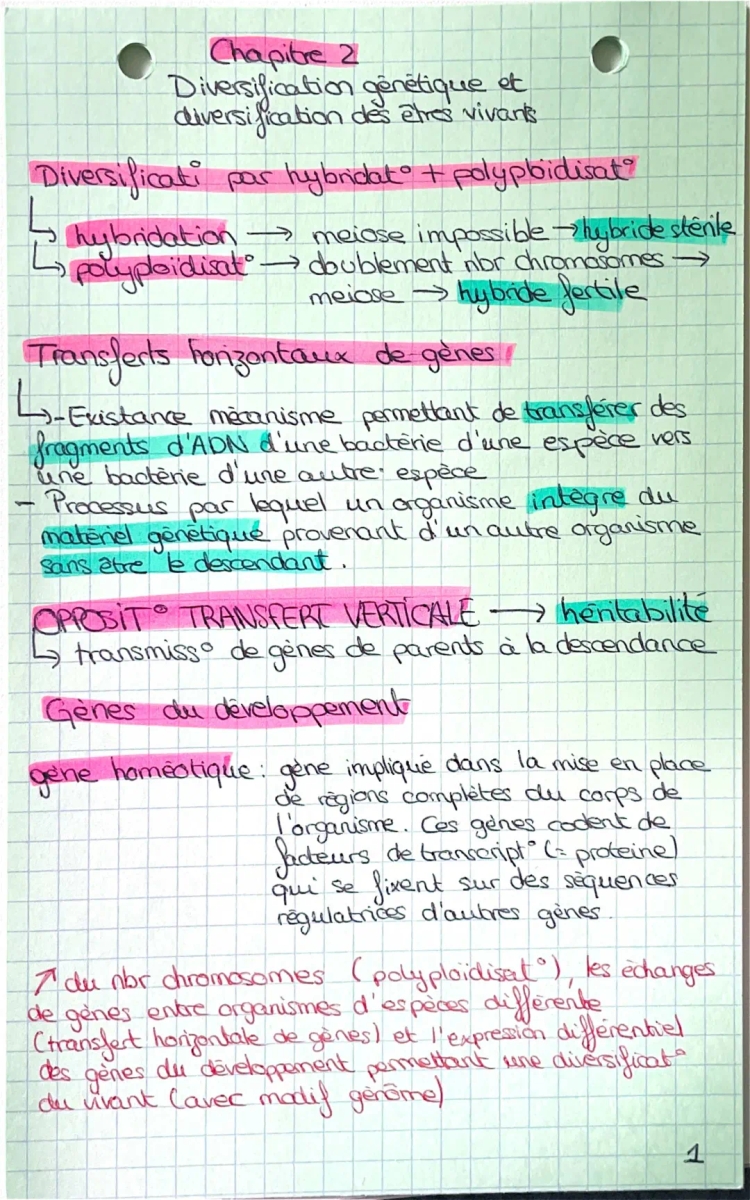 Chapitre 2
Diversification génétique et
diversification des êtres vivants
Diversificati° par hybridat° + polyploïdisat°
↳ hybridation → meiose impossible → hybride stérile
↳ polyploïdisat° → doublement nbr chromosomes →
meiose → hybride fertile
Transferts horizontaux de gènes
↳ - Existance mécanisme permettant de transférer des
fragments d'ADN d'une bactérie d'une espèce vers
une bactérie d'une autre espèce
- Processus par lequel un organisme intègre du
matériel génétique provenant d'un autre organisme
sans être le descendant.
OPPOSIT° TRANSFERT VERTICALE → héritabilité
↳ transmiss° de gènes de parents à la descendance
Gènes du développement
gène homéotique : gène impliqué dans la mise en place
de régions complètes du corps de
l'organisme. Ces gènes codent de
facteurs de transcript° (= proteine)
qui se fixent sur des séquences
régulatrices d'autres gènes.
↗ du nbr chromosomes (polyploïdisat°), les échanges
de gènes entre organismes d'espèces différente
(transfert horizontale de gènes) et l'expression différentiel
des gènes du développement permettant une diversificat°
du vivant (avec modif génôme)
1